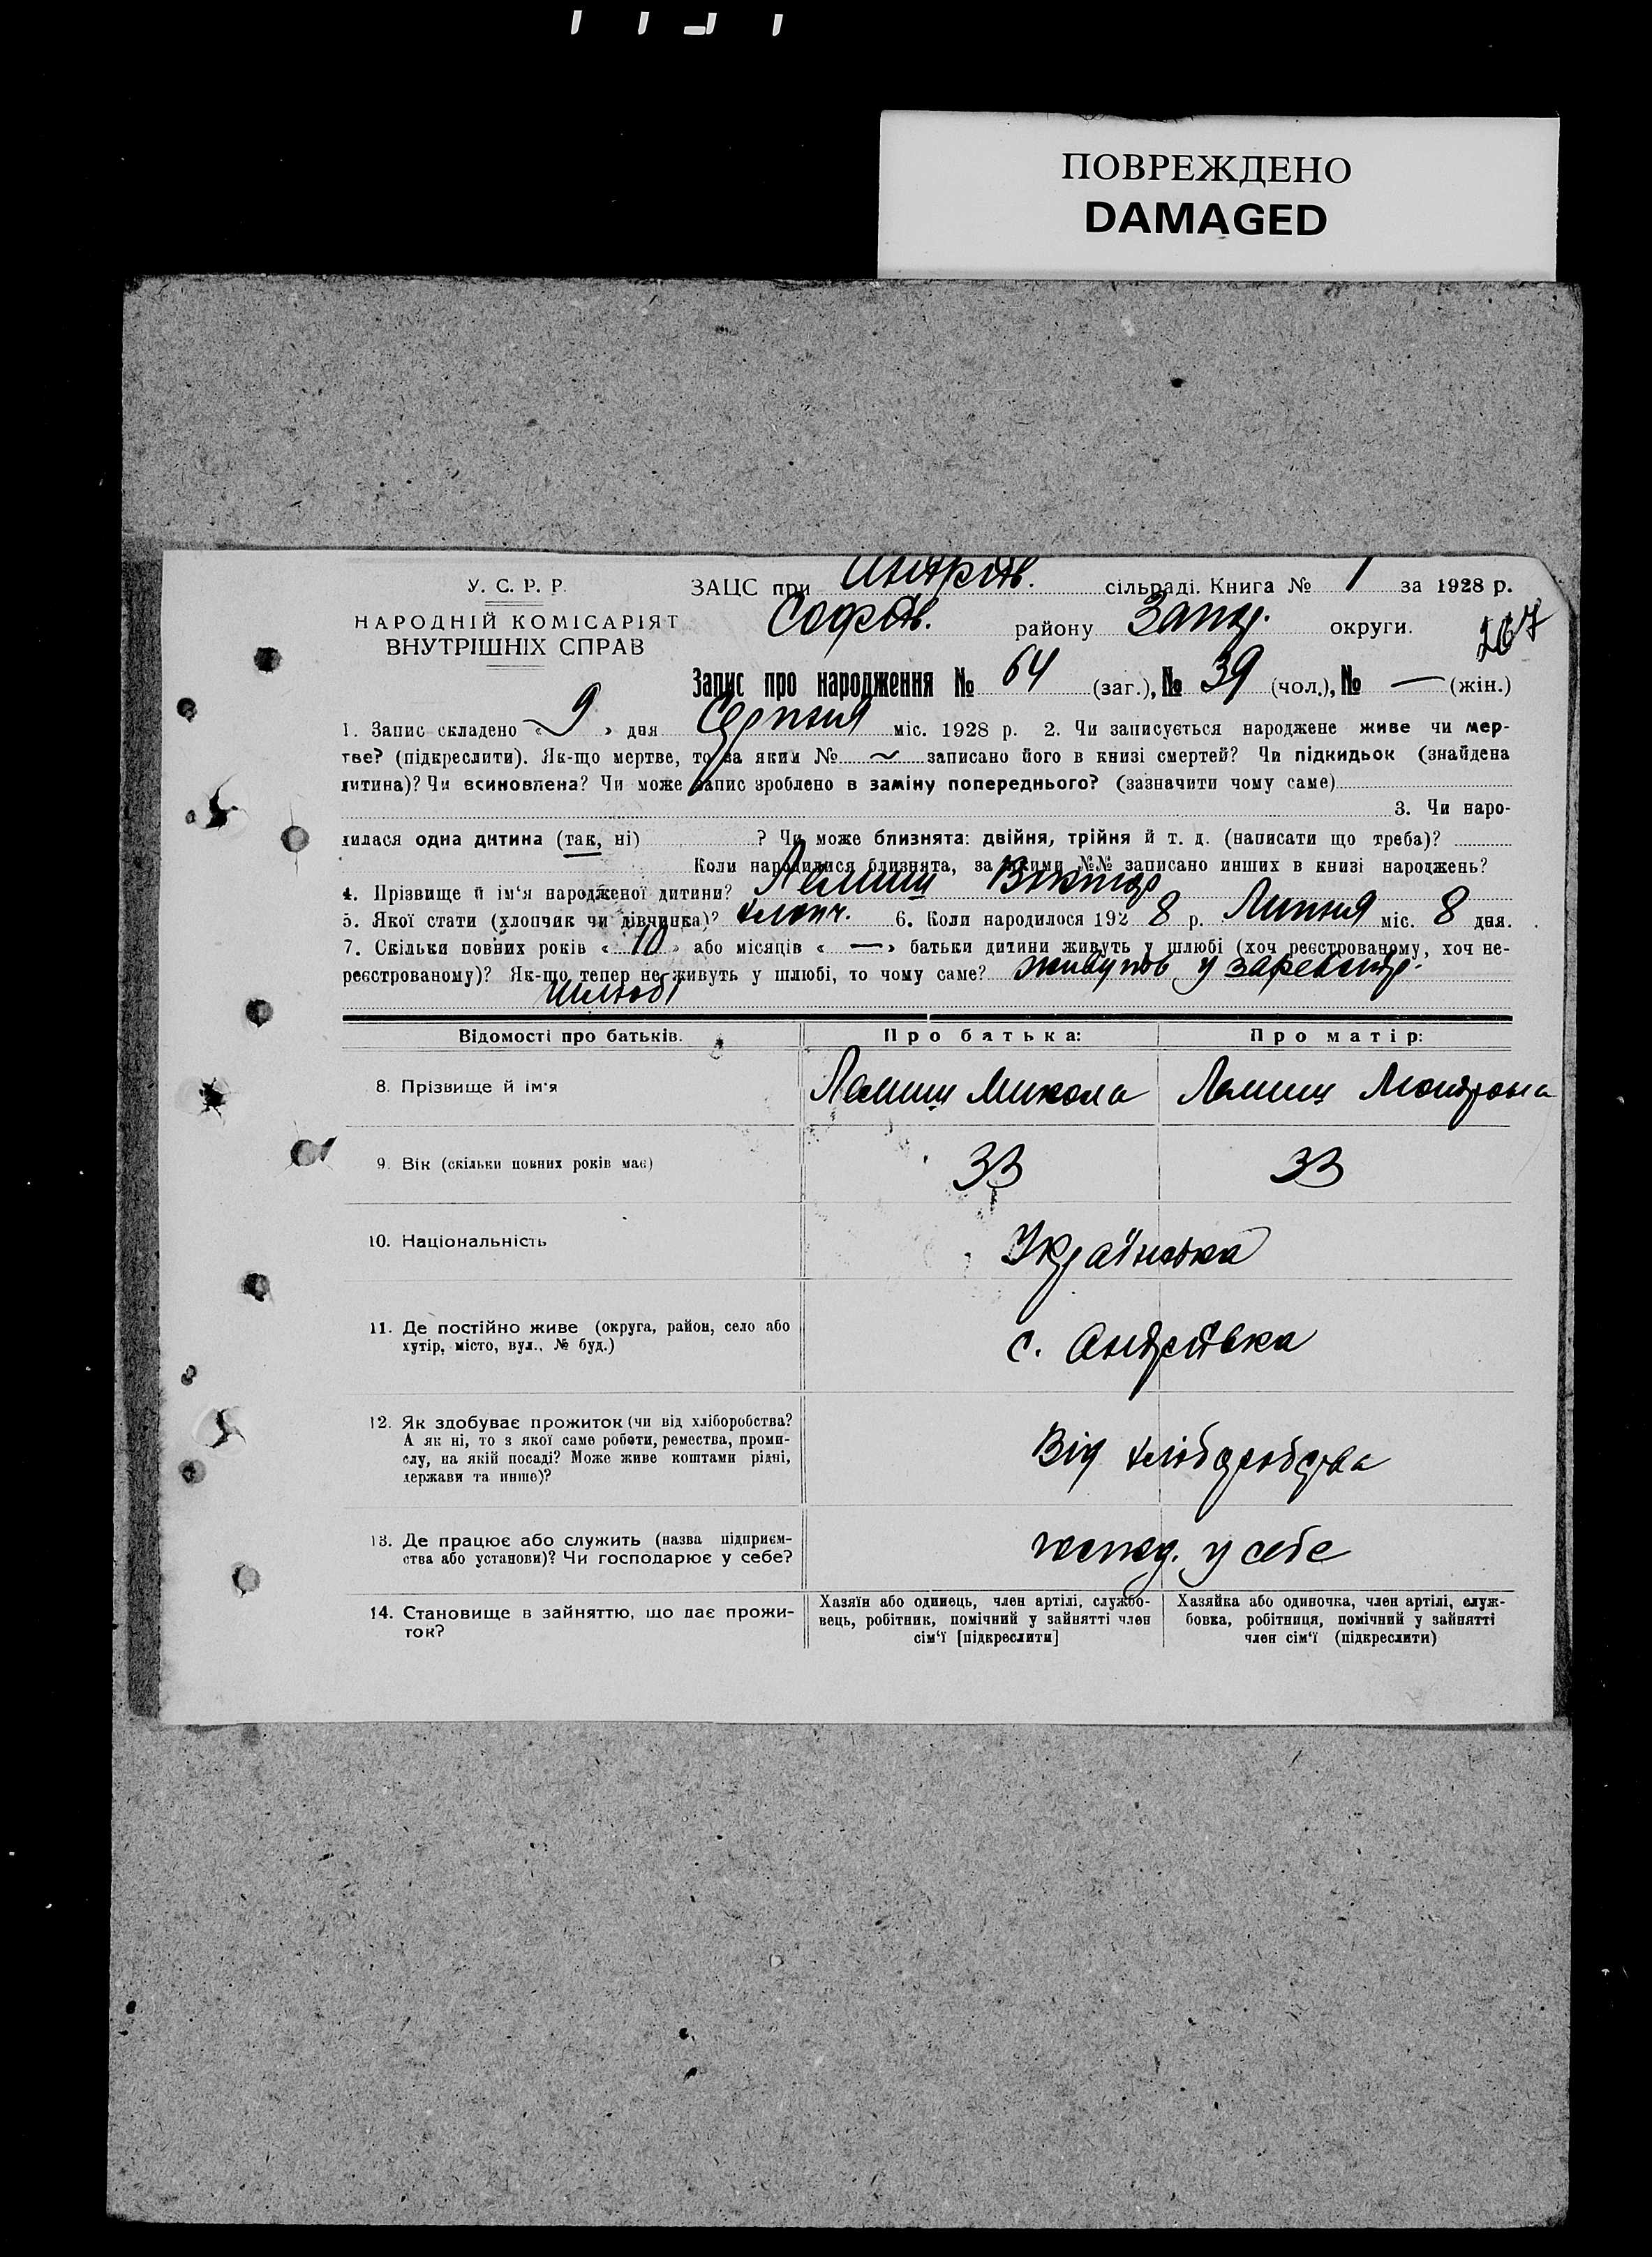 ПОВРЕЖДЕНО
DAMAGED
У. С. Р. Р.
НАРОДНІЙ КОМІСАРІЯТ
ВНУТРІШНІХ СПРАВ
ЗАЦС при Андріїв. сільраді. Книга № 1 за 1928 р.
Софіїв. району Запор. округи.
267
Запис про народження № 64 (заг.), № 39 (чол.), № — (жін.)
1. Запис складено « 9 » дня Серпня міс. 1928 р. 2. Чи записується народжене живе чи мер-
тве? (підкреслити). Як-що мертве, то за яким № ~ записано його в книзі смертей? Чи підкидьок (знайдена
дитина)? Чи всиновлена? Чи може запис зроблено в заміну попереднього? (зазначити чому саме)
3. Чи наро-
дилася одна дитина (так, ні) ? Чи може близнята: двійня, трійня й т. д. (написати що треба)?
Коли народилися близнята, за якими №№ записано инших в книзі народжень?
4. Прізвище й ім'я народженої дитини? Віктор
5. Якої стати (хлопчик чи дівчинка)? хлопч. 6. Коли народилося 192 8 р. Липня міс. 8 дня.
7. Скільки повних років « 10 » або місяців « — » батьки дитини живуть у шлюбі (хоч реєстрованому, хоч не-
реєстрованому)? Як-що тепер не живуть у шлюбі, то чому саме? живуть у зареєстр.
шлюбі
Відомості про батьків. Про батька: Про матір:
8. Прізвище й ім'я Микола
9. Вік (скільки повних років має) 33 33
10. Національність Українська
11. Де постійно живе (округа, район, село або
хутір, місто, вул., № буд.) с. Андріївка
12. Як здобуває прожиток (чи від хліборобства?
А як ні, то з якої саме роботи, ремества, проми-
слу, на якій посаді? Може живе коштами рідні,
держави та инше)? Від хліборобства
13. Де працює або служить (назва підприєм-
ства або установи)? Чи господарює у себе? господ. у себе
14. Становище в зайняттю, що дає прожи-
ток?
Хазяїн або одинець, член артілі, службо-
вець, робітник, помічний у зайнятті член
сім'ї [підкреслити]
Хазяйка або одиночка, член артілі, служ-
бовка, робітниця, помічний у зайнятті
член сім'ї (підкреслити)